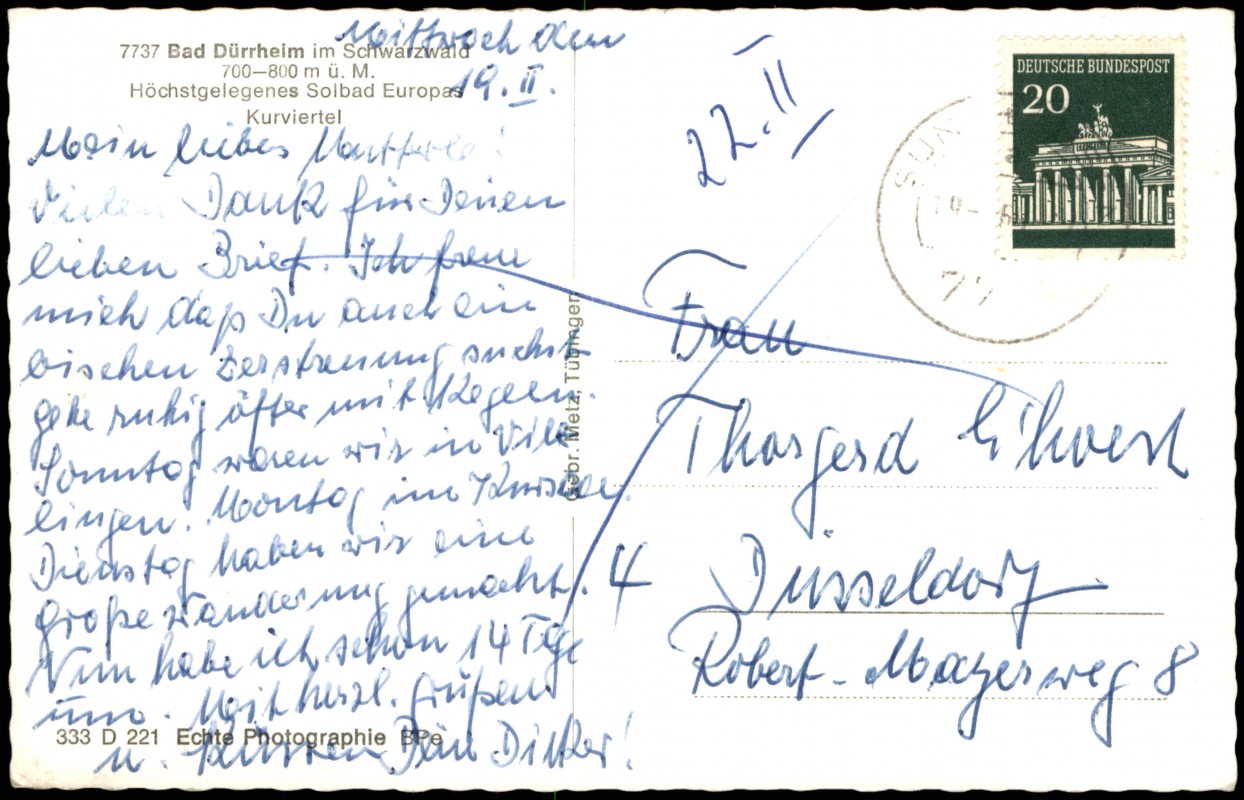 7737 Bad Dürrheim im Schwarzwald
700–800 m ü. M.
Höchstgelegenes Solbad Europas
Kurviertel
Mittwoch den
19. II.
Mein liebes
Vielen Dank für Deinen
lieben Brief. Ich freu
mich daß Du auch ein
bischen Zerstreuung suchst
gehe ruhig öfter mit Kegeln.
Sonntag waren wir in Vil
lingen. Montag im
Dienstag haben wir eine
große Wanderung gemacht.
Nun habe ich schon 14 Tage
um. Mit herzl. Grüßen
u. Küssen Dein
333 D 221 Echte Photographie BPe
Gebr. Metz, Tübingen
22. II
DEUTSCHE BUNDESPOST
20
77
Frau
Thorgerd
4 Düsseldorf
Robert-Mayerweg 8